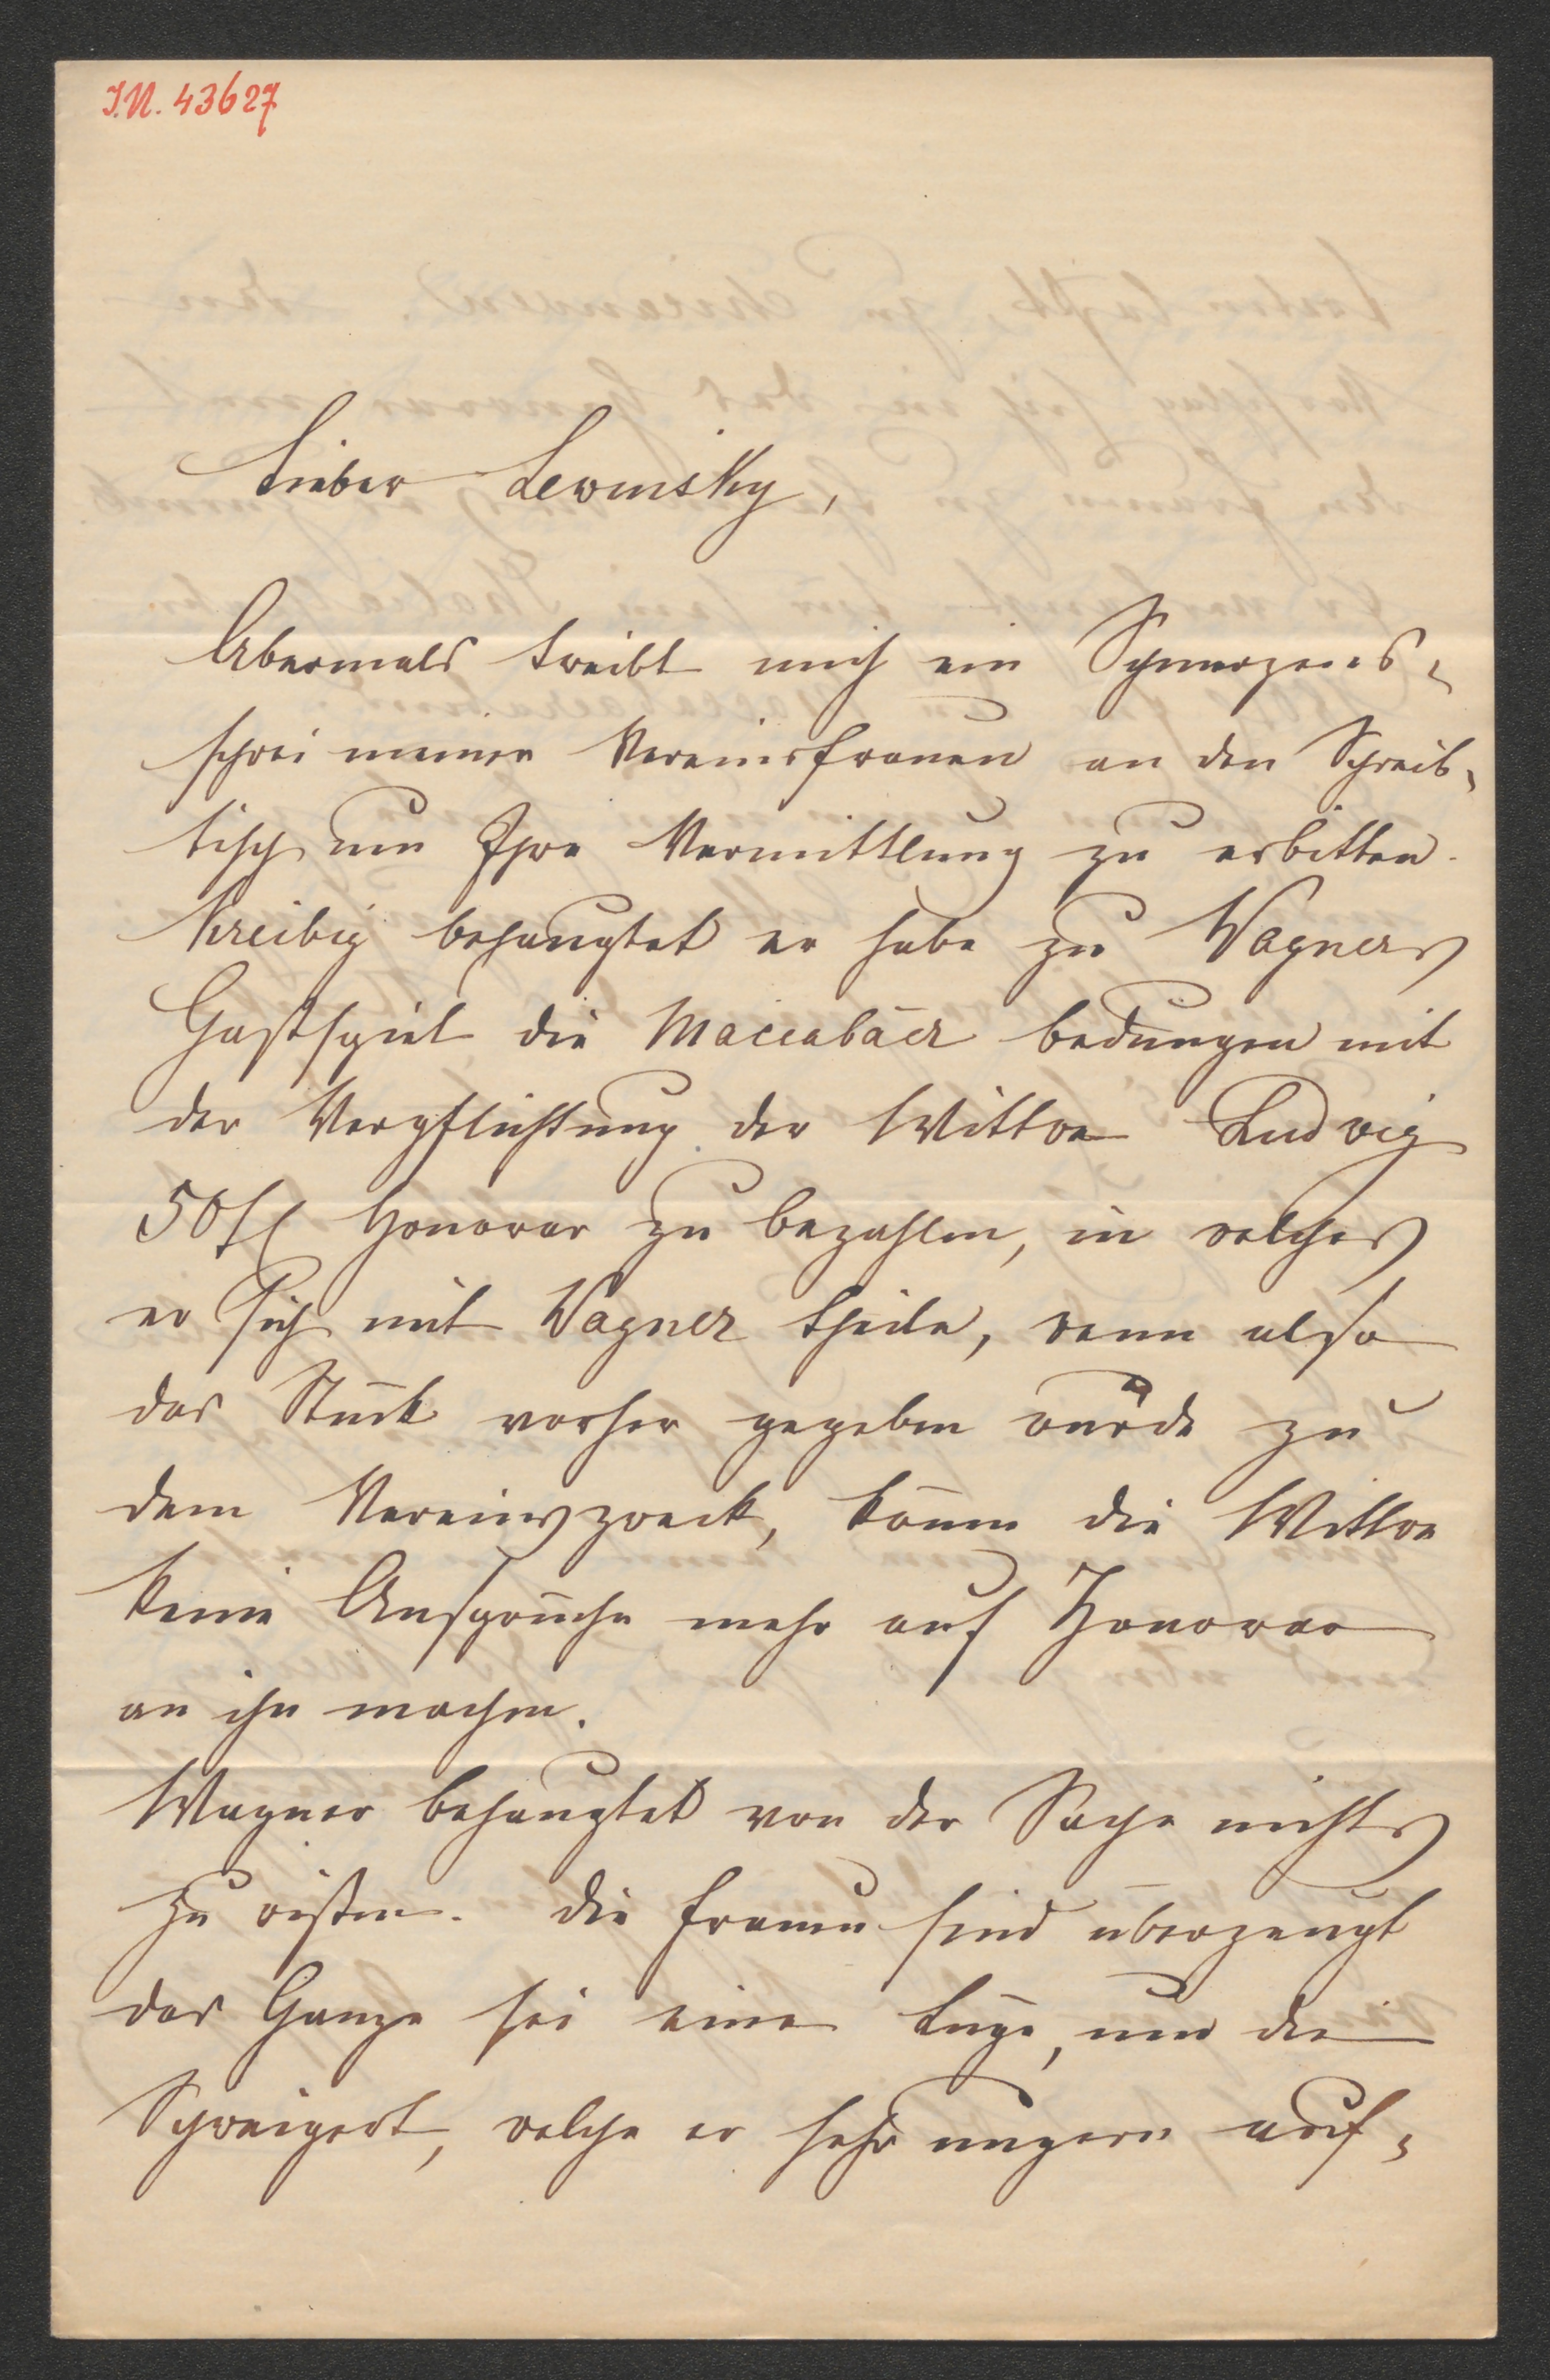 J.N. 43627
Lieber Lewinsky,
Abermals treibt mich ein Schmerzens-
schrei meiner Vereinsfrauen an den Schreib-
tisch um Ihre Vermittlung zu erbitten.
Kreibig behauptet er habe zu Wagners
Gastspiel die Maccabäer bedungen mit
der Verpflichtung der Wittwe Ludwig
50 fl Honorar zu bezahlen, in welches
er sich mit Wagner theile, wenn also
das Stück vorher gegeben würde zu
dem Vereinszweck, könne die Wittwe
keine Ansprüche mehr auf Honorar
an ihn machen.
Wagner behauptet von der Sache nichts
zu wissen. Die Frauen sind überzeugt
das Ganze sei eine Lüge, um die
Schweigert, welche er sehr ungern auf-